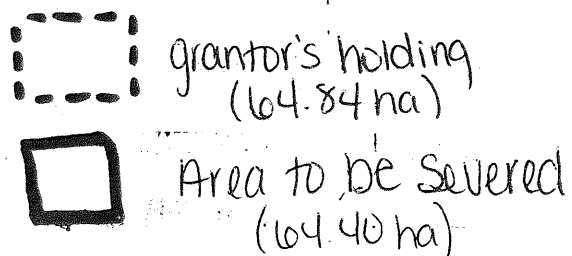 grantor's holding
(64.84 ha)
Area to be severed
(64.40 ha)